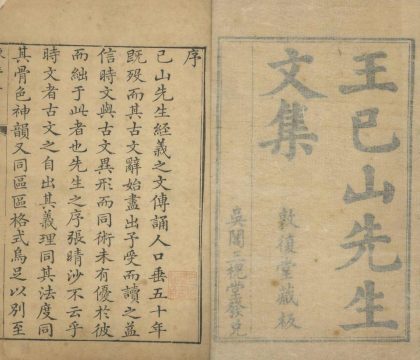 王已山先生
文集
敦復堂藏板
吳閶三槐堂發兌
序
已山先生經義之文傳誦人口垂五十年
既歿而其古文辭始盡出予受而讀之益
信時文與古文異形而同術未有優於彼
而絀于此者也先生之序張曉沙不云乎
時文者古文之自出其義理同其法度同
其骨色神韻又同區區格式烏足以别至